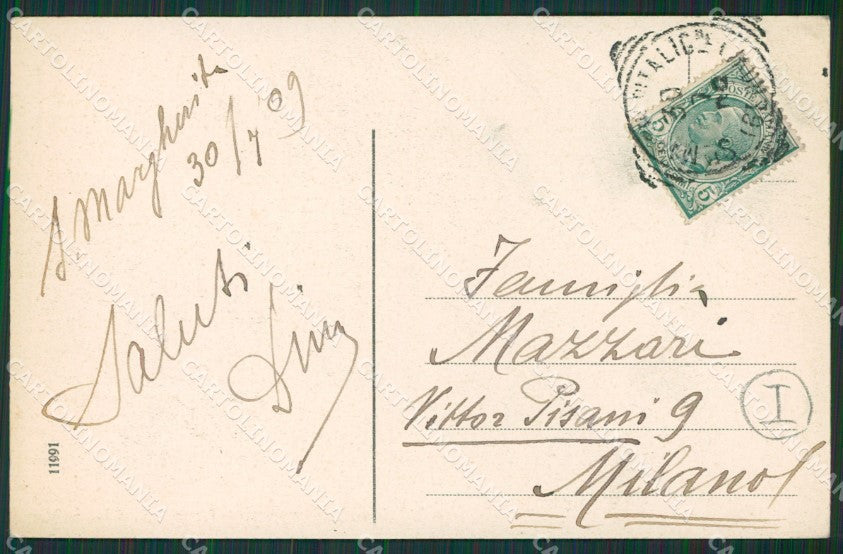 S. Margherita
30/7 09
Saluti
11991
Famiglia
Mazzari
Vittor Pisani 9
Milano
I
5
CARTOLINOMANIA